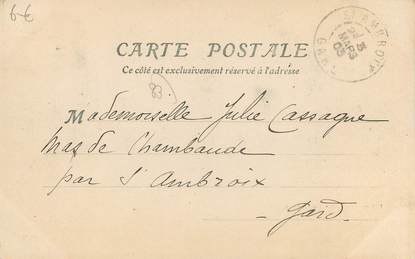 6-€
CARTE POSTALE
Ce côté est exclusivement réservé à l'adresse
83
Mademoiselle Julie Cassagne
Mas de Chambaude
par St Ambroix
Gard.